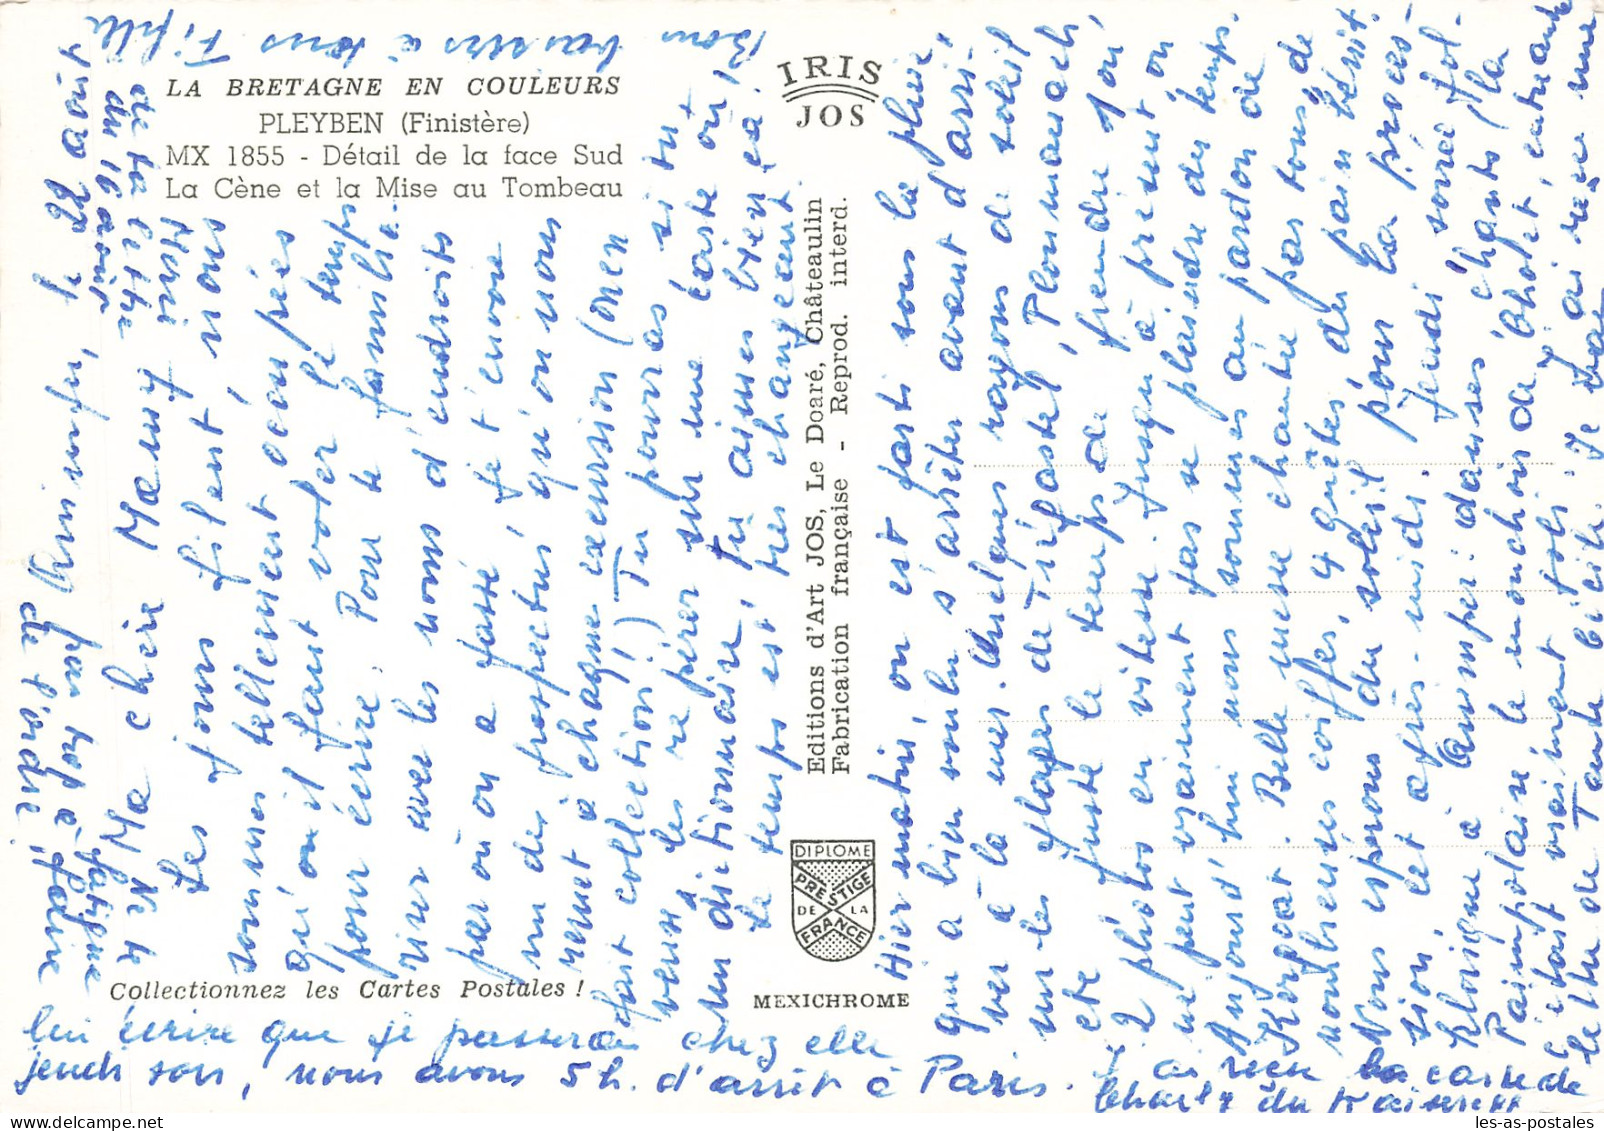 LA BRETAGNE EN COULEURS
PLEYBEN (Finistère)
MX 1855 - Détail de la face Sud
La Cène et la Mise au Tombeau
IRIS
JOS
Editions d'Art JOS, Le Doaré, Châteaulin
Fabrication française - Reprod. interd.
DIPLOME
PRESTIGE
DE LA
FRANCE
MEXICHROME
Collectionnez les Cartes Postales !
22 août
Ma chère Mamy
Les jours filent, nous
sommes tellement occupées
qu'on il faut voler le temps
pour écrire. Pour te familia-
riser avec les noms d'endroits
par où on a passé, je t'envoie
un des prospectus qu'on nous
remet à chaque excursion (Men
fait collection !) Tu pourras si tu
veux les repérer sur une carte ou
un dictionnaire, tu aimes bien ça.
Le temps est très changeant.
Hier matin, on est parti sous la pluie,
qui a bien voulu s'arrêter avant d'arri-
ver à la mer. Quelques rayons de soleil
sur les plages de Trégastel, Ploumanach,
etc juste le temps de prendre 1 ou
2 photos en vitesse. Jusqu'à présent on
ne peut vraiment pas se plaindre du temps.
Aujourd'hui nous sommes au pardon de
Kergoat. Belle messe chantée par tous, de
nombreuses coiffes, 4 quêtes, du pain bénit.
Nous espérons du soleil pour la proces-
sion, cet après-midi. Jeudi soirée fol-
klorique à Quimper : danses, chants (la
Paimpolaise, le mouchoir de Cholet, entre autres
c'était vraiment joli. Je
lettre de Tante Cécile. Je vais
lui écrire que je passerai chez elle
jeudi soir, nous avons 5h. d'arrêt à Paris.
ai reçu la carte de
Bons baisers à tous Fifille